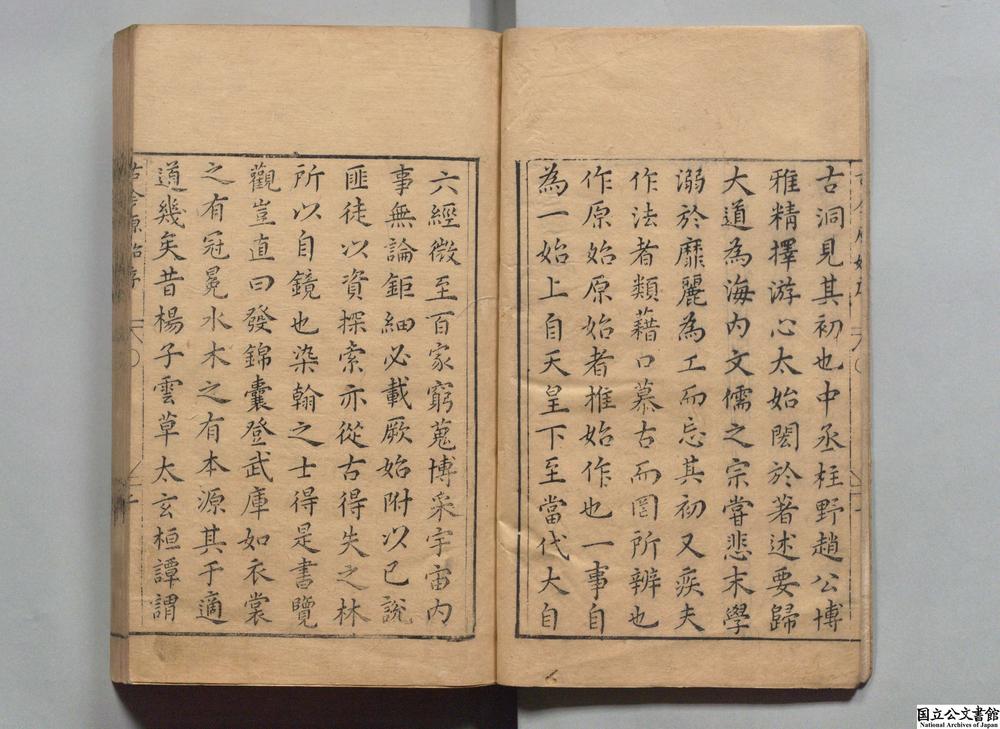 古洞見其初也中丞柱野趙公博
雅精擇游心太始閎於著述要歸
大道為海内文儒之宗甞悲末學
溺於靡麗為工而忘其初又疾夫
作法者類藉口慕古而罔所辨也
作原始原始者推始作也一事自
為一始上自天皇下至當代大自
六經微至百家窮蒐博采宇宙内
事無論鉅細必載厥始附以已說
匪徒以資探索亦從古得失之林
所以自鏡也染翰之士得是書覽
觀豈直曰發錦囊登武庫如衣裳
之有冠冕水木之有本源其于適
道幾矣昔楊子雲草太玄桓譚謂
古今原始序
國立公文書館
National Archives of Japan